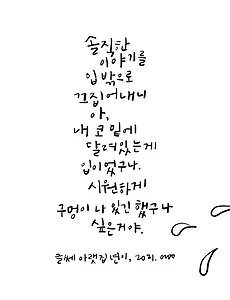 솔직한
이야기를
입 밖으로
끄집어내니
아,
내 코 밑에
달려있는게
입이었구나.
시원하게
구멍이 나 있긴 했구나
싶은거야.
글씨 아랫집 년이, 2021.